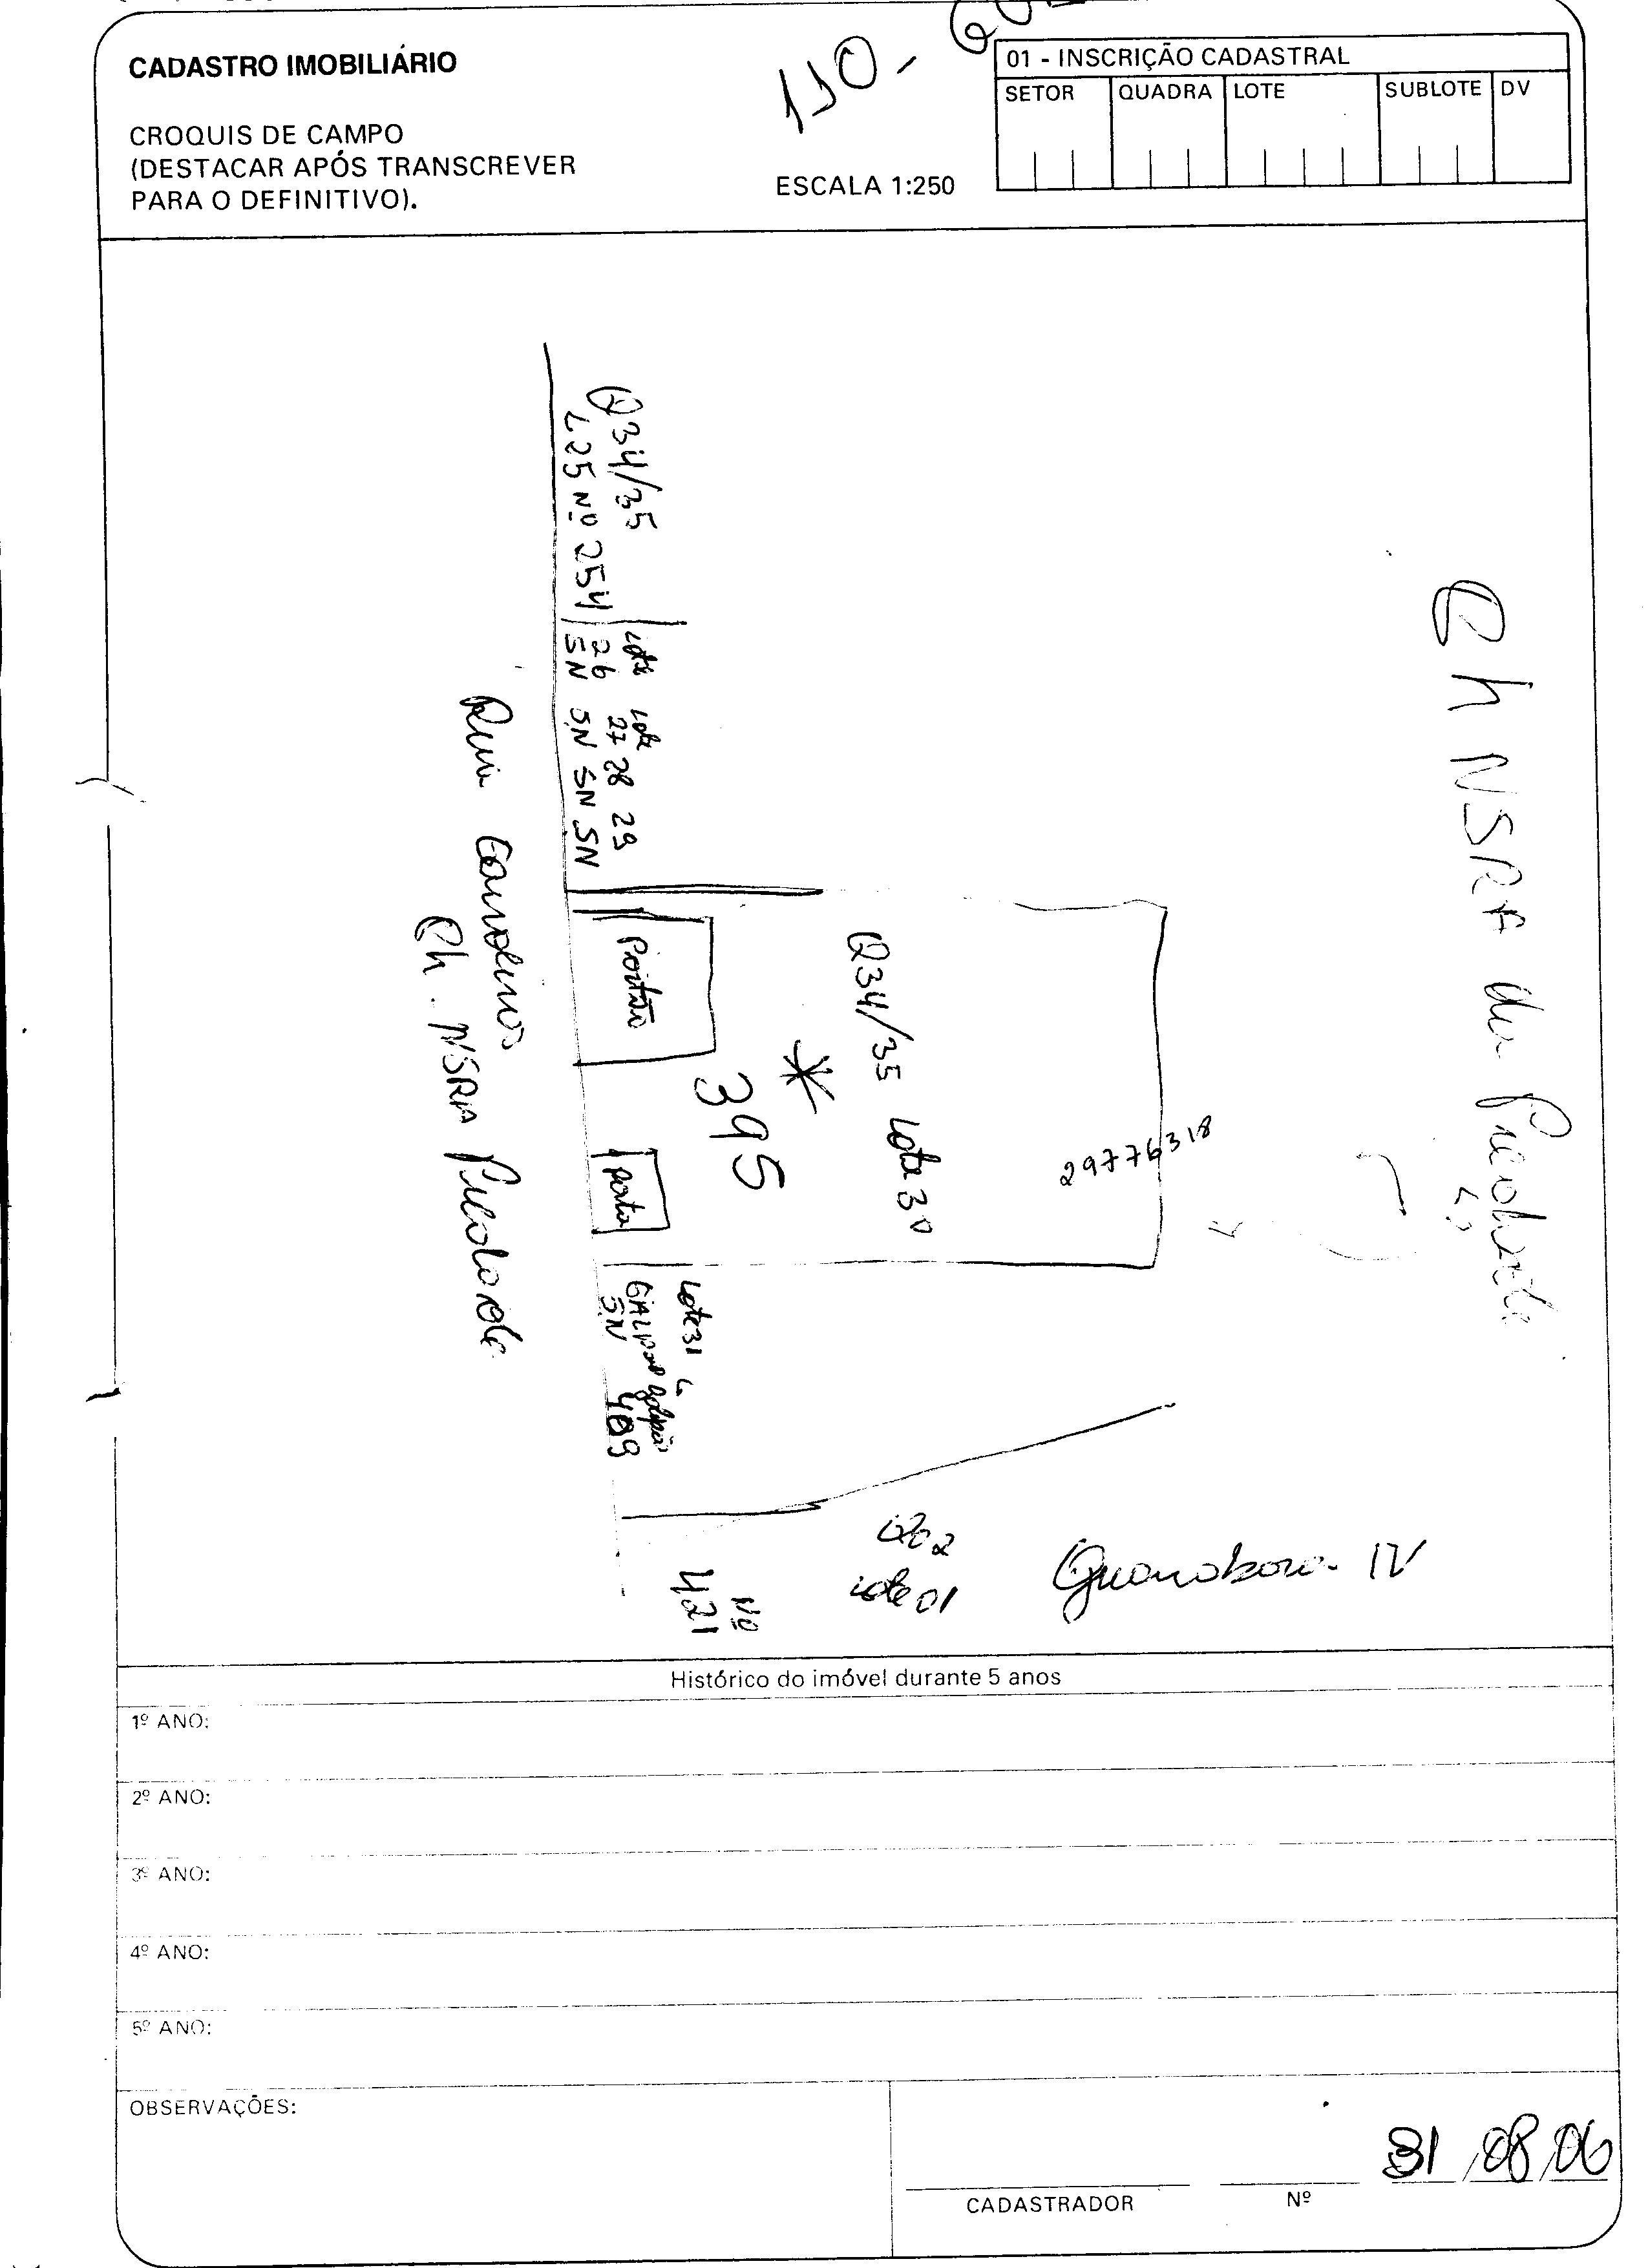 CADASTRO IMOBILIÁRIO
CROQUIS DE CAMPO
(DESTACAR APÓS TRANSCREVER
PARA O DEFINITIVO).
110 -
ESCALA 1:250
01 - INSCRIÇÃO CADASTRAL
SETOR QUADRA LOTE SUBLOTE DV
Q34/35
L25 Nº 254
Lote Lote
26 27 28 29
SN SN SN SN
Rua
Ch. NSRA Piedade
Portão
395
Q34/35 Lote 30
Porta
29776318
Ch NSRA da Piedade
Lote 31
Galpão
SN 409
Nº
421
Lote 01
Guanabara IV
Histórico do imóvel durante 5 anos
1º ANO:
2º ANO:
3º ANO:
4º ANO:
5º ANO:
OBSERVAÇÕES:
31/08/06
CADASTRADOR Nº